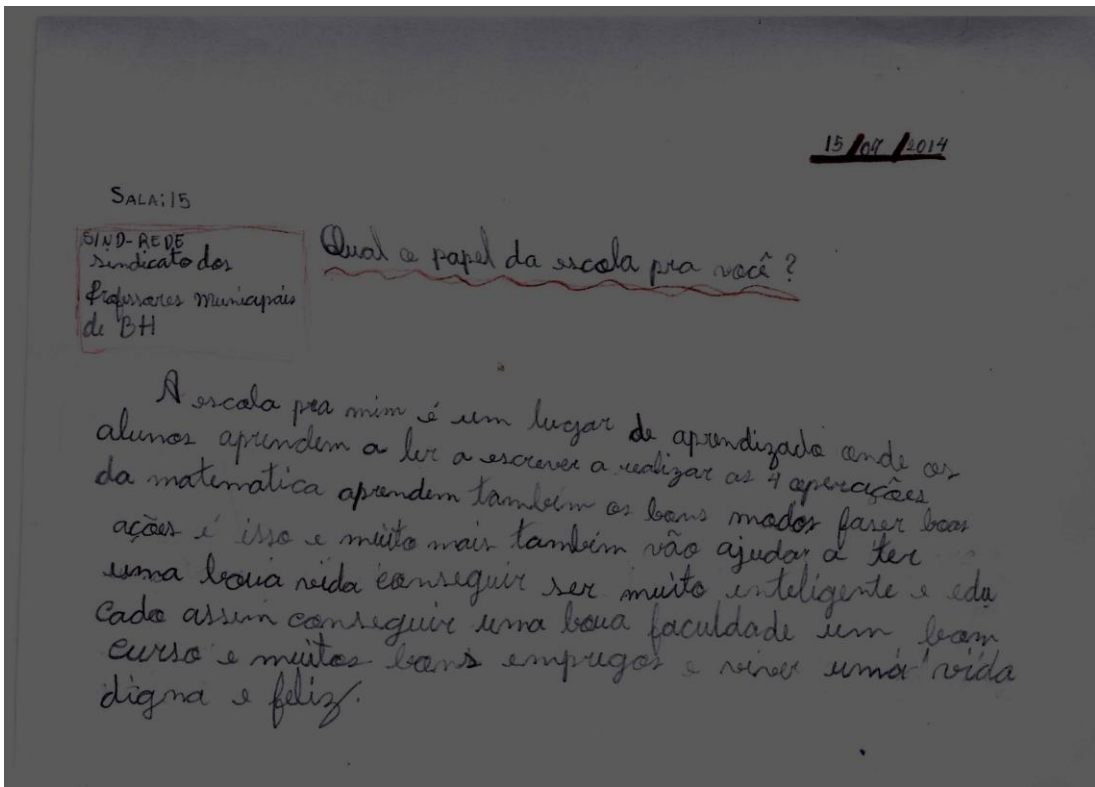 15/07/2014
SALA:15
SIND-REDE
Sindicato dos
Professores Municipais
de BH
Qual o papel da escola pra você?
A escola pra mim é um lugar de aprendizado onde os
alunos aprendem a ler a escrever a realizar as 4 operações
da matematica aprendem também os bons modos faser boas
ações é isso e muito mais também vão ajudar a ter
uma boua vida conseguir ser muito inteligente e edu
cado assim conseguir uma boua faculdade um bom
curso e muitos bons empregos e viver uma vida
digna e feliz.